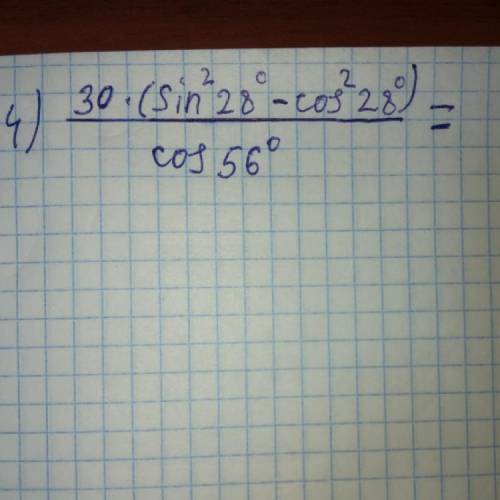 4) 30·(sin²28°-cos²28°) =
cos56°